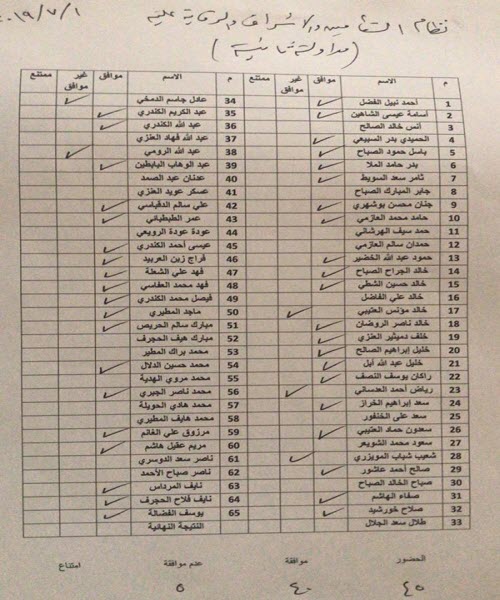 ٢٠١٩/٧/١
نظام التأمين والإشراف والرقابة عليه
(مداولة ثانية)
م الاسم موافق غير موافق ممتنع
1 أحمد نبيل الفضل
2 أسامة عيسى الشاهين
3 أنس خالد الصالح
4 الحميدي بدر السبيعي
5 باسل حمود الصباح
6 بدر حامد الملا
7 ثامر سعد السويط
8 جابر المبارك الصباح
9 جنان محسن بوشهري
10 حامد محمد العازمي
11 حمد سيف الهرشاني
12 حمدان سالم العازمي
13 حمود عبد الله الخضير
14 خالد الجراح الصباح
15 خالد حسين الشطي
16 خالد علي الفاضل
17 خالد مؤنس العتيبي
18 خالد ناصر الروضان
19 خلف دميثير العنزي
20 خليل إبراهيم الصالح
21 خليل عبد الله أبل
22 راكان يوسف النصف
23 رياض أحمد العدساني
24 سعد إبراهيم الخراز
25 سعد علي الخنفور
26 سعدون حماد العتيبي
27 سعود محمد الشويعر
28 شعيب شباب المويزري
29 صالح أحمد عاشور
30 صباح الخالد الصباح
31 صفاء الهاشم
32 صلاح خورشيد
33 طلال سعد الجلال
م الاسم موافق غير موافق ممتنع
34 عادل جاسم الدمخي
35 عبد الكريم الكندري
36 عبد الله الكندري
37 عبد الله فهاد العنزي
38 عبد الله الرومي
39 عبد الوهاب البابطين
40 عدنان عبد الصمد
41 عسكر عويد العنزي
42 علي سالم الدقباسي
43 عمر الطبطبائي
44 عودة عودة الرويعي
45 عيسى أحمد الكندري
46 فراج زبن العربيد
47 فهد علي الشعلة
48 فهد محمد العفاسي
49 فيصل محمد الكندري
50 ماجد المطيري
51 مبارك سالم الحريص
52 مبارك هيف الحجرف
53 محمد براك المطير
54 محمد حسين الدلال
55 محمد مروي الهدية
56 محمد ناصر الجبري
57 محمد هادي الحويلة
58 محمد هايف المطيري
59 مرزوق علي الغانم
60 مريم عقيل هاشم
61 ناصر سعد الدوسري
62 ناصر صباح الأحمد
63 نايف المرداس
64 نايف فلاح الحجرف
65 يوسف الفضالة
النتيجة النهائية
الحضور موافقة عدم موافقة امتناع
٤٥ ٤٠ ٥